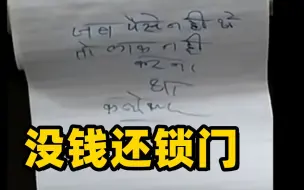 जब पैसे नही थे
तो लाक नही
करना
था
没钱还锁门